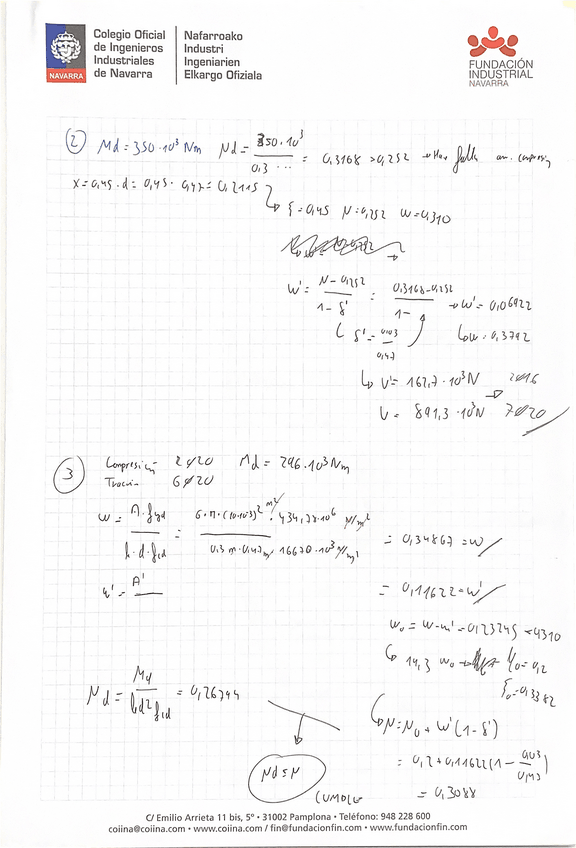 Colegio Oficial
de Ingenieros
Industriales
de Navarra
Nafarroako
Industri
Ingeniarien
Elkargo Ofiziala
NAVARRA
FUNDACIÓN
INDUSTRIAL
NAVARRA
② Md = 350·10³ Nm Nd = 350·10³ / 0.3 ... = 0,3168 > 0,252 → falla
X = 0,45·d = 0,45·0,47 = 0,2115
ξ = 0,45 N = 0,252 w = 0,310
w' = N - 0,252 / 1 - δ' = 0,3168 - 0,252 / 1 - → w' = 0,06922
δ' = 0,03 / 0,47 w = 0,3792
↳ U' = 162,7·10³N 2ø16
U = 891,3·10³N 7ø20
③ Compresión 2ø20 Md = 296·10³Nm
Tracción 6ø20
w = A·fyd / b·d·fcd = 6·π·(10·10⁻³)² m²·434,78·10⁶ N/m² / 0,3 m·0,47m·16670·10³ N/m² = 0,34867 = w
w' = A' = 0,11622 = w'
w₀ = w - w' = 0,23245 < 0,310
↳ 14,3 w₀ → N₀ = 0,2
ξ₀ = 0,3382
Nd = Md / bd² fcd = 0,26744
↳ N = N₀ + w'(1 - δ')
= 0,2 + 0,11622(1 - 0,03 / 0,47)
= 0,3088
Nd ≤ N
CUMPLE
C/ Emilio Arrieta 11 bis, 5º • 31002 Pamplona • Teléfono: 948 228 600
coiina@coiina.com • www.coiina.com / fin@fundacionfin.com • www.fundacionfin.com